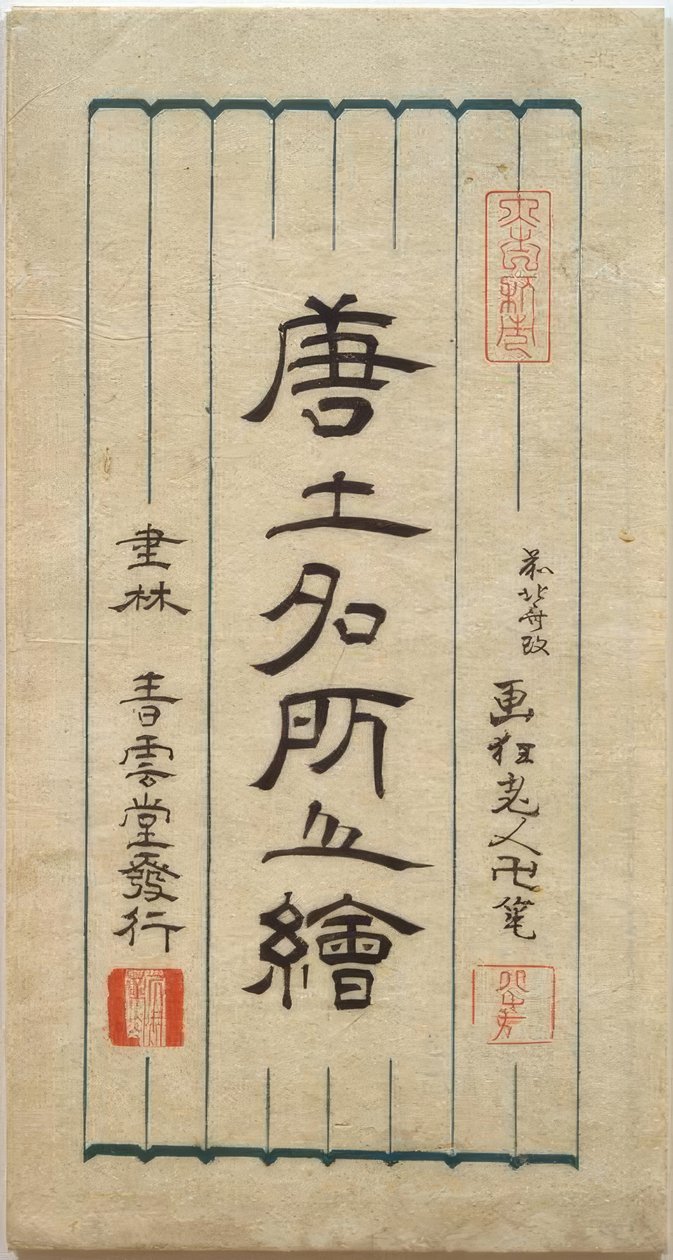 前北斎改
画狂老人卍筆
唐土名所之繪
書林 青雲堂發行